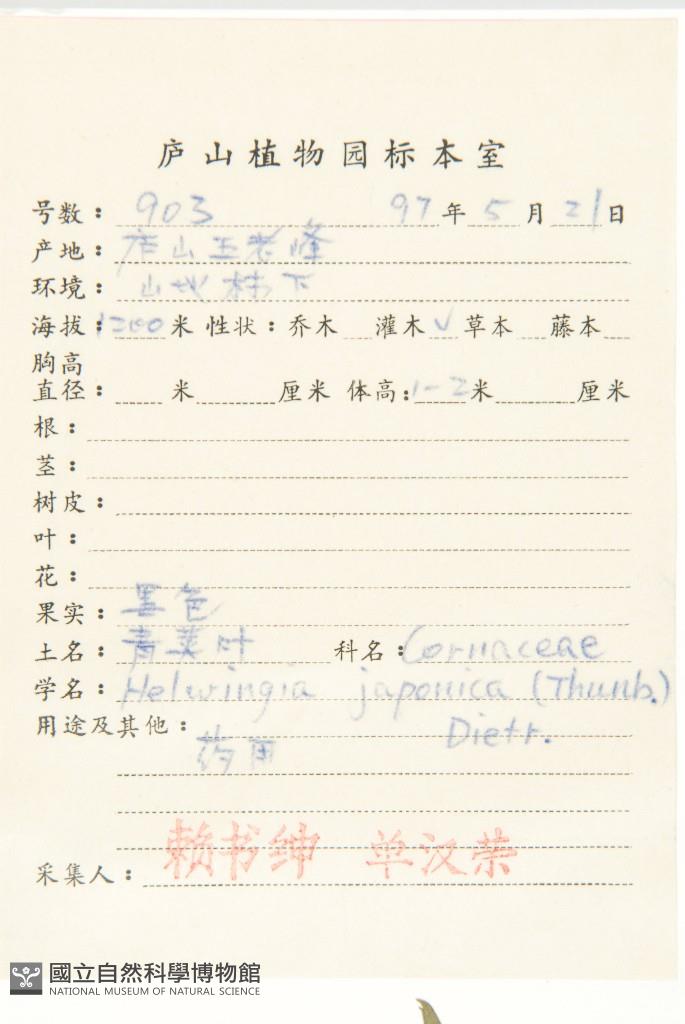 庐山植物园标本室
号数：903 97年5月21日
产地：庐山五老峰
环境：山地林下
海拔：1200米 性状：乔木 灌木√ 草本 藤本
胸高
直径： 米 厘米 体高：1-2米 厘米
根：
茎：
树皮：
叶：
花：
果实：黑色
土名：青荚叶 科名：Cornaceae
学名：Helwingia japonica (Thunb.)
Dietr.
用途及其他：
药用
采集人：赖书绅 单汉荣
國立自然科學博物館
NATIONAL MUSEUM OF NATURAL SCIENCE